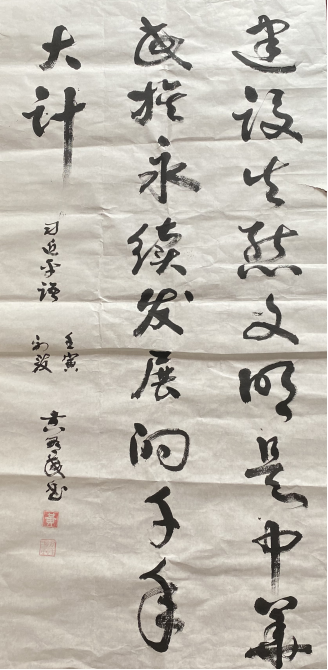 建设生態文明是中華
民族永續发展的千年
大计
习近平语
壬寅
书